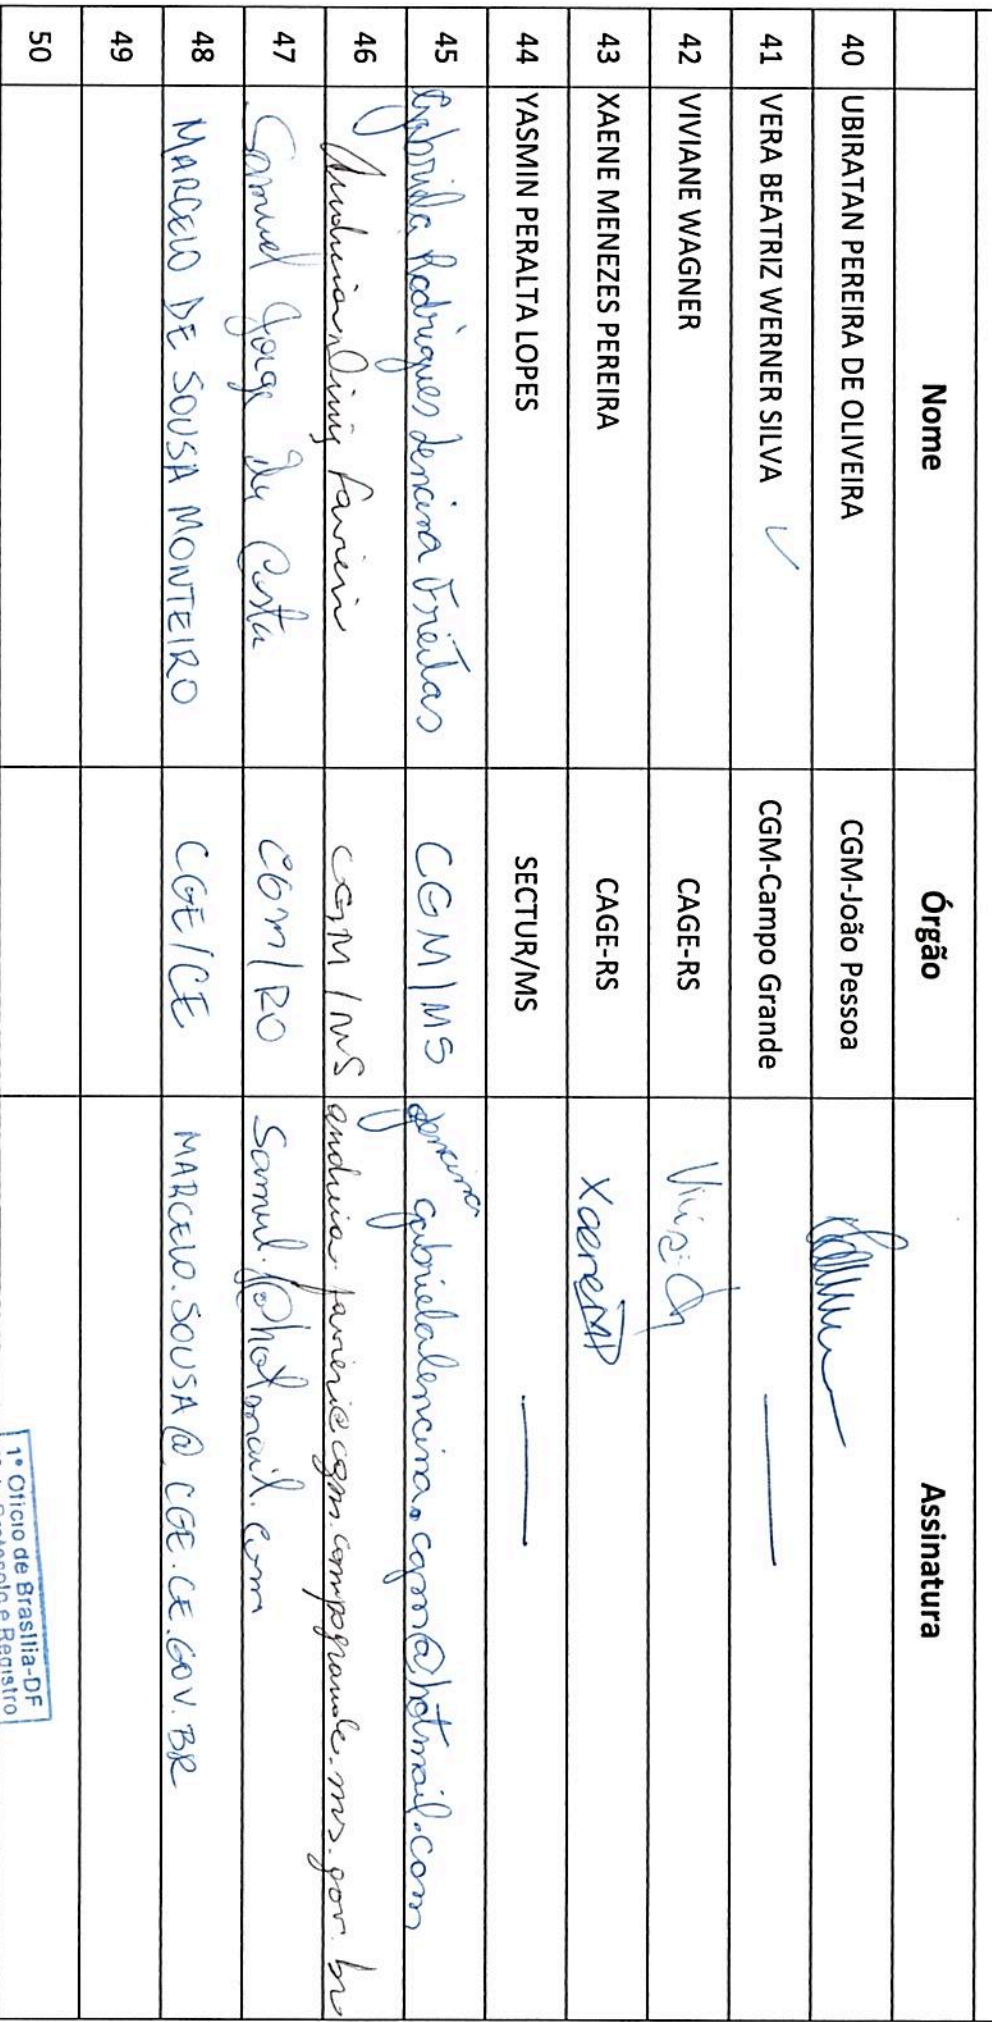 Nome Órgão Assinatura
40 UBIRATAN PEREIRA DE OLIVEIRA CGM-João Pessoa
41 VERA BEATRIZ WERNER SILVA CGM-Campo Grande
42 VIVIANE WAGNER CAGE-RS
43 XAENE MENEZES PEREIRA CAGE-RS XaeneMP
44 YASMIN PERALTA LOPES SECTUR/MS
45 Gabriela Rodrigues Lencina Freitas CGM/MS gabrielalencina.cgm@hotmail.com
46 CGM/MS
47 Samuel Jorge da Costa CGM/RO
48 MARCELO DE SOUSA MONTEIRO CGE/CE MARCELO.SOUSA@CGE.CE.GOV.BR
49
50
1º Oficio de Brasília-DF
Protocolo e Registro